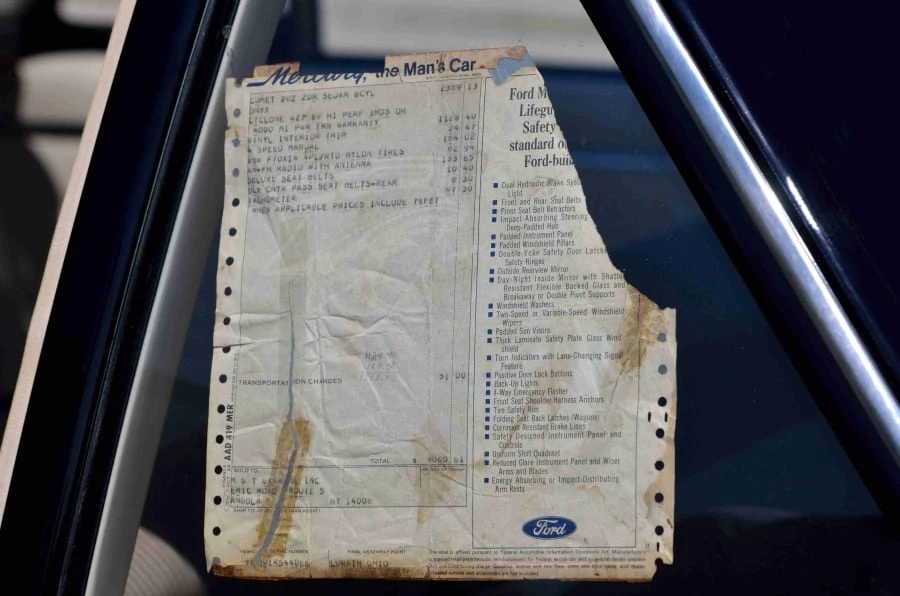 Mercury, the Man's Car
COMET 202 2DR SEDAN 8CYL 2389 13
ONYX
CYCLONE 427 8V HI PERF 3MOS OR 1129 40
4000 MI PWR TRN WARRANTY
VINYL INTERIOR TRIM 24 47
4 SPEED MANUAL 184 02
WSW F70X14 4PLYRTD NYLON TIRES 62 94
AM-FM RADIO WITH ANTENNA 133 65
DELUXE SEAT BELTS 10 40
DLX CNTR PASS SEAT BELTS-REAR 6 30
TACHOMETER 47 30
WHEN APPLICABLE PRICES INCLUDE FRFET
TRANSPORTATION CHARGES 51 00
TOTAL $ 4060 61
AAD 419 MER
SOLD TO
INC
ERIC ROAD ROUTE 5
ANGOLA NY 14006
FINAL ASSEMBLY POINT
LORAIN OHIO
Ford M
Lifegu
Safety
standard o
Ford-buil
Dual Hydraulic Brake Syst
Light
Front and Rear Seat Belts
Front Seat Belt Retractors
Impact-Absorbing Steering
Deep-Padded Hub
Padded Instrument Panel
Padded Windshield Pillars
Double-Yoke Safety Door Latche
Safety Hinges
Outside Rearview Mirror
Day-Night Inside Mirror with Shatte
Resistant Flexible Backed Glass and
Breakaway or Double Pivot Supports
Windshield Washers
Two-Speed or Variable-Speed Windshield
Wipers
Padded Sun Visors
Thick Laminate Safety Plate Glass Wind
shield
Turn Indicators with Lane-Changing Signal
Feature
Positive Door Lock Buttons
Back-Up Lights
4-Way Emergency Flasher
Front Seat Shoulder Harness Anchors
Tire Safety Rim
Folding Seat Back Latches (Wagons)
Corrosion Resistant Brake Lines
Safety Designed Instrument Panel and
Controls
Uniform Shift Quadrant
Reduced Glare Instrument Panel and Wiper
Arms and Blades
Energy Absorbing or Impact-Distributing
Arm Rests
Ford